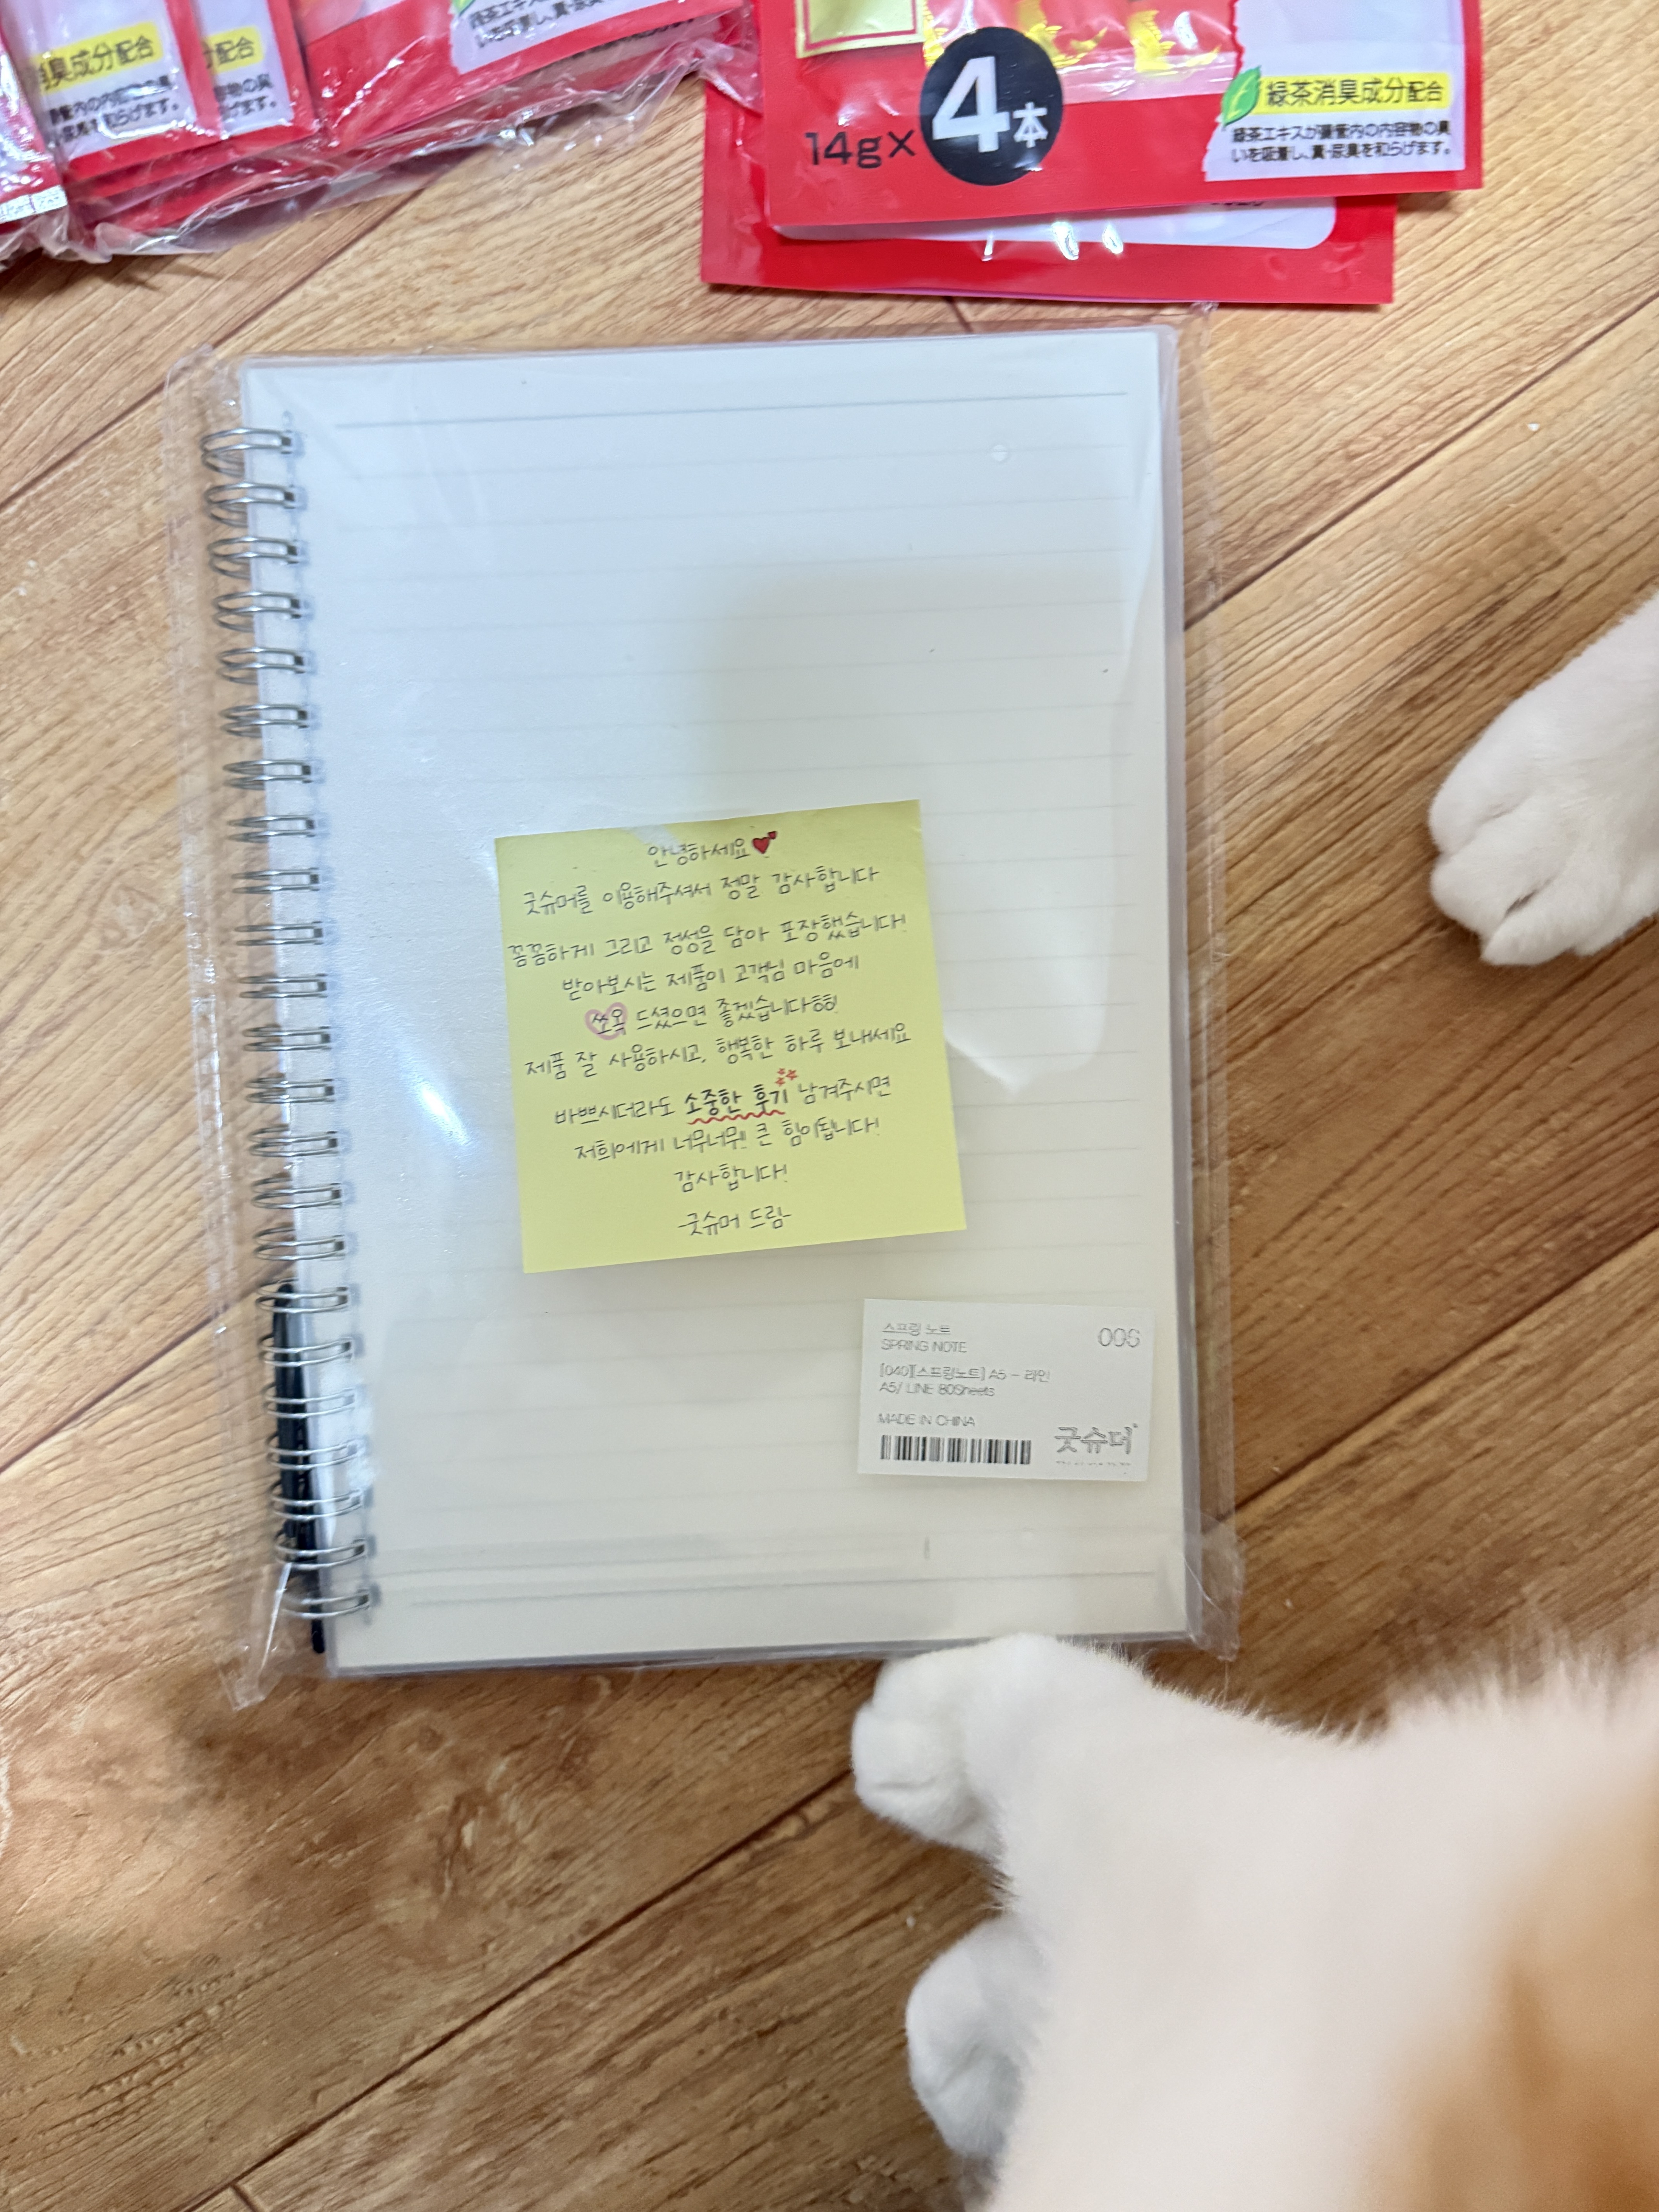 消臭成分配合
配合
14g×4本
緑茶消臭成分配合
緑茶エキスが腸管内の内容物の臭
いを吸着し、糞・尿臭を和らげます。
안녕하세요
굿슈머를 이용해주셔서 정말 감사합니다
꼼꼼하게 그리고 정성을 담아 포장했습니다!
받아보시는 제품이 고객님 마음에
쏘옥 드셨으면 좋겠습니다
제품 잘 사용하시고, 행복한 하루 보내세요
바쁘시더라도 소중한 후기 남겨주시면
저희에게 너무너무! 큰 힘이됩니다!
감사합니다!
-굿슈머 드림-
스프링 노트
SPRING NOTE
006
[040][스프링노트] A5 - 라인
A5/ LINE 80Sheets
MADE IN CHINA
굿슈머